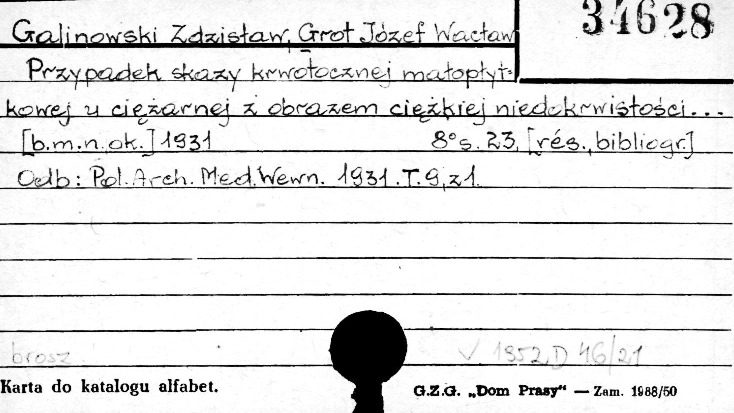 34628
Galinowski Zdzisław, Grot Józef Wacław
Przypadek skazy krwotocznej małopłyt=
kowej u ciężarnej z obrazem ciężkiej niedokrwistości...
[b.m.n.ok.] 1931 8° s. 23, [rés., bibliogr.]
Odb: Pol. Arch. Med. Wewn. 1931. T. 9, z 1.
brosz. V 1952 D 46/21
Karta do katalogu alfabet. G.Z.G. „Dom Prasy" — Zam. 1988/50